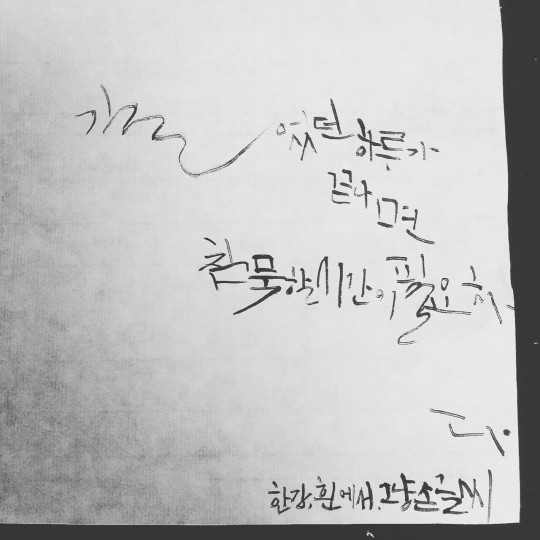 기일
었던 하루가
끝나면
침묵할 시간이 필요하
다.
한강, 흰에서. 그냥손글씨